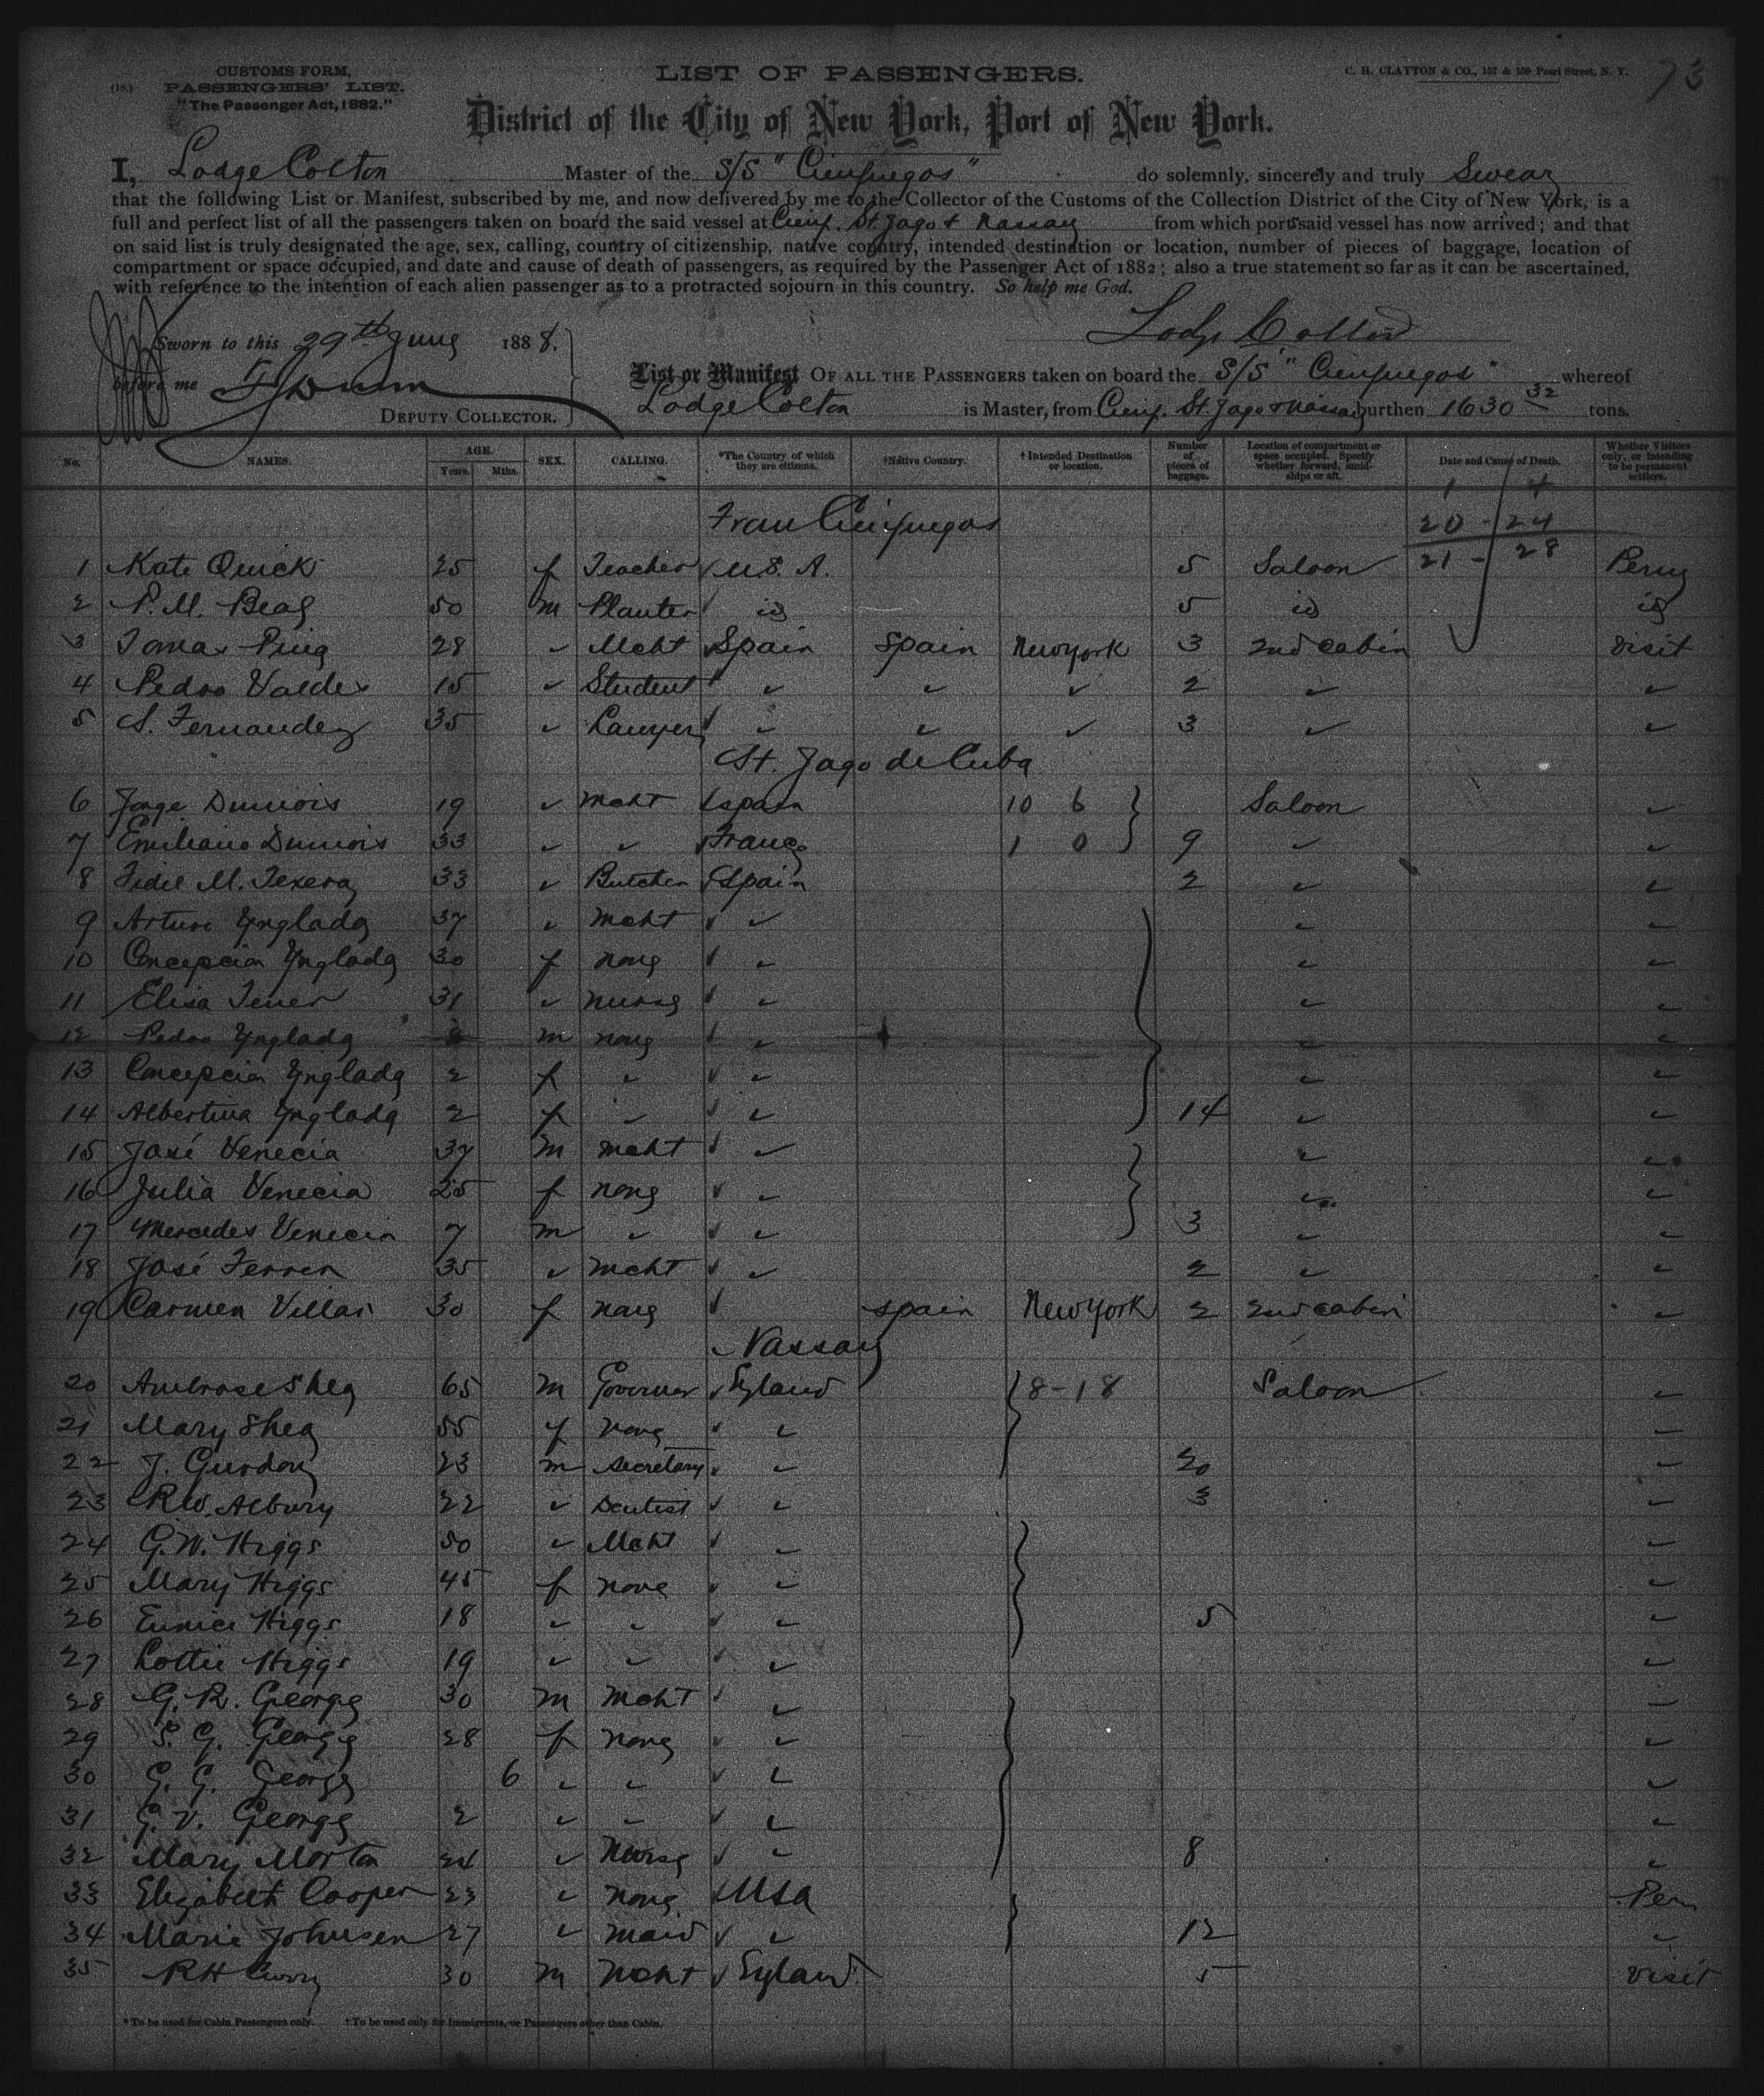 73
(18.)
CUSTOMS FORM,
PASSENGERS' LIST.
"The Passenger Act, 1882."
LIST OF PASSENGERS.
C. H. CLAYTON & CO., 157 & 159 Pearl Street, N. Y.
District of the City of New York, Port of New York.
I, Lodge Colton Master of the S/S "Cienfuegos" do solemnly, sincerely and truly Swear
that the following List or Manifest, subscribed by me, and now delivered by me to the Collector of the Customs of the Collection District of the City of New York, is a
full and perfect list of all the passengers taken on board the said vessel at Cienf. St. Jago & Nassau from which ports said vessel has now arrived; and that
on said list is truly designated the age, sex, calling, country of citizenship, native country, intended destination or location, number of pieces of baggage, location of
compartment or space occupied, and date and cause of death of passengers, as required by the Passenger Act of 1882; also a true statement so far as it can be ascertained,
with reference to the intention of each alien passenger as to a protracted sojourn in this country. So help me God.
Lodge Colton
Sworn to this 29th June 1888.
before me
DEPUTY COLLECTOR.
List or Manifest OF ALL THE PASSENGERS taken on board the S/S "Cienfuegos" whereof
Lodge Colton is Master, from Cienf. St. Jago & Nassau burthen 1630 32 tons.
No. NAMES. AGE. Years. Mths. SEX. CALLING. *The Country of which they are citizens. †Native Country. †Intended Destination or location. Number of pieces of baggage. Location of compartment or space occupied. Specify whether forward, amidships or aft. Date and Cause of Death. Whether Visitors only, or intending to be permanent settlers.
1 4
From Cienfuegos 20 - 24
21 - 28
1 Kate Quick 25 f Teacher U.S.A. 5 Saloon Perm
2 P. M. Beal 50 m Planter id 5 id id
3 Tomas Puig 28 " Mcht Spain Spain New York 3 2nd cabin visit
4 Pedro Valdes 15 " Student " " " 2 " "
5 S. Fernandez 35 " Lawyer " " " 3 " "
St. Jago de Cuba
6 Jorge Dumois 19 " Mcht Spain 10 6 Saloon "
7 Emiliano Dumois 33 " " France 1 0 9 " "
8 Fidel M. Texera 33 " Butcher Spain 2 " "
9 Arturo Ynglada 37 " Mcht " " "
10 Concepcion Ynglada 30 f none " " "
11 Elisa 31 " nurse " " "
12 Pedro Ynglada m none " " "
13 Concepcion Ynglada 2 f " " " "
14 Albertina Ynglada 2 f " " 14 " "
15 José Venecia 37 m mcht " " "
16 Julia Venecia 25 f none " " "
17 Mercedes Venecia 7 m " " 3 " "
18 José Ferrer 35 " mcht " 2 " "
19 Carmen Villar 30 f none Spain New York 2 2nd cabin "
Nassau
20 Ambrose Shea 65 m Governor England 8-18 Saloon "
21 Mary Shea 55 f none " "
22 J. Gurdon 23 m secretary " 20 "
23 R.W. Albury 22 " Dentist " 3 "
24 G.W. Higgs 50 " Mcht " "
25 Mary Higgs 45 f none " "
26 Eunice Higgs 18 " " " 5 "
27 Lottie Higgs 19 " " " "
28 G. R. George 30 m mcht " "
29 S. G. George 28 f none " "
30 G. G. George 6 " " " "
31 G. V. George 2 " " " "
32 Mary Morton 24 " Nurse " 8 "
33 Elizabeth Cooper 23 " none USA Perm
34 Marie Johnsen 27 " maid " 12 "
35 R H Curry 30 m Mcht England 5 visit
*To be used for Cabin Passengers only. †To be used only for Immigrants, or Passengers other than Cabin.